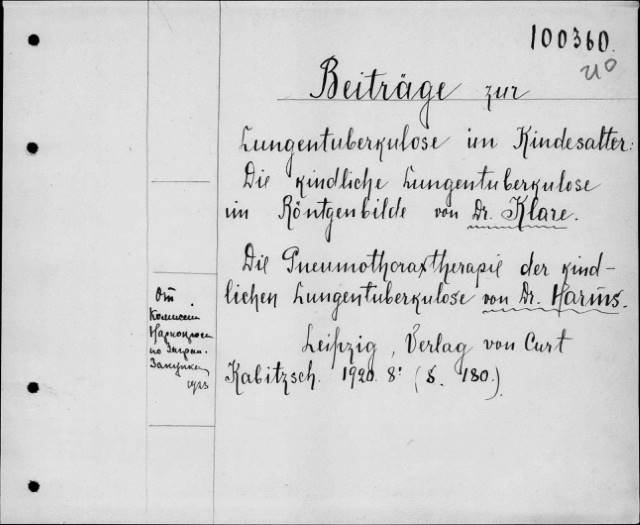 100360.
Beiträge zur
Lungentuberkulose im Kindesalter:
Die kindliche Lungentuberkulose
im Röntgenbilde von Dr. Klare.
Die Pneumothoraxtherapie der kind-
lichen Lungentuberkulose von Dr. Harms.
Leipzig, Verlag von Curt
Kabitzsch. 1920. 8º (S. 180.)
От
Комиссии
Наркомпроса
по Загран.
Закупке
1923